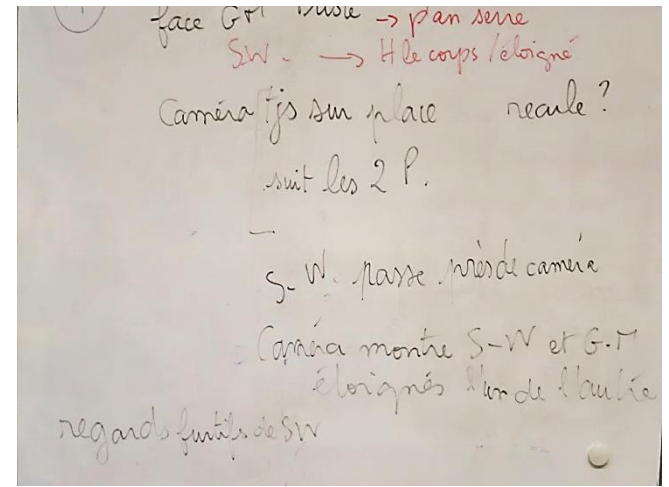 face GM → plan serré
SW. → H le corps / éloigné
Caméra tjs sur place recule?
suit les 2 P.
—
S-W. passe près de caméra
Caméra montre S-W et G.M
éloignés l'un de l'autre
regards furtifs de SW